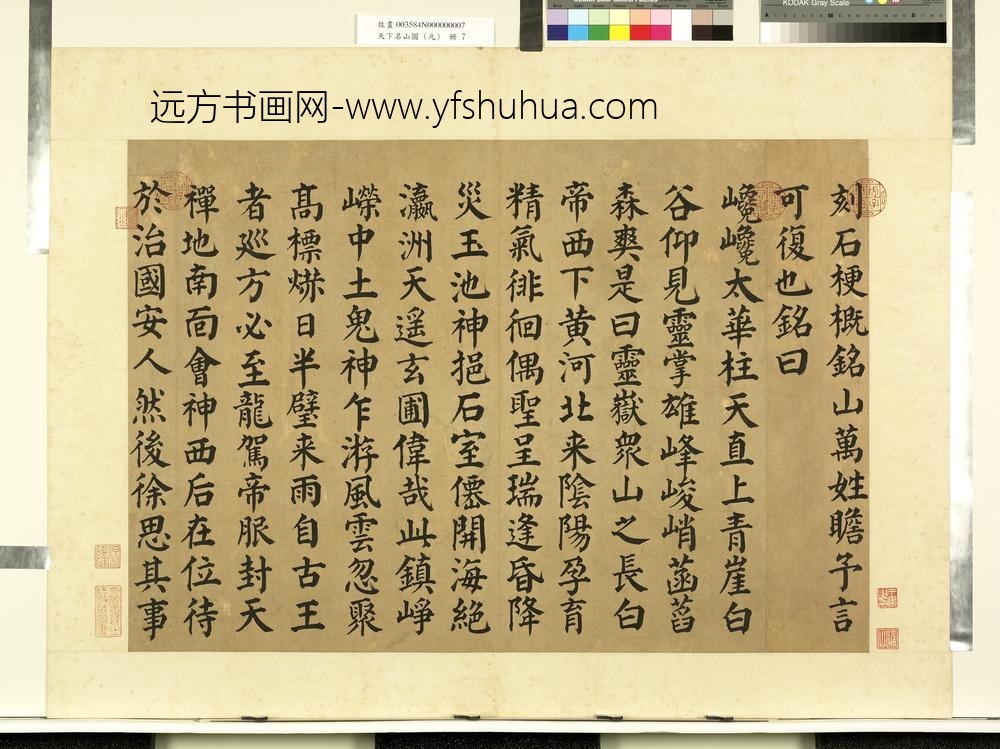 故畫 003584N000000007
天下名山圖（元） 冊 7
KODAK Gray Scale
远方书画网-www.yfshuhua.com
刻石梗概銘山萬姓瞻予言
可復也銘曰
巉巉太華柱天直上青崖白
谷仰見靈掌雄峰峻峭菡萏
森爽是曰靈嶽衆山之長白
帝西下黄河北来陰陽孕育
精氣徘徊偶聖呈瑞逢昏降
災玉池神挹石室僊開海絶
瀛洲天遥玄圃偉哉此鎮崢
嶸中土鬼神乍游風雲忽聚
髙標爀日半壁来雨自古王
者巡方必至龍駕帝服封天
禪地南面會神西后在位待
於治國安人然後徐思其事